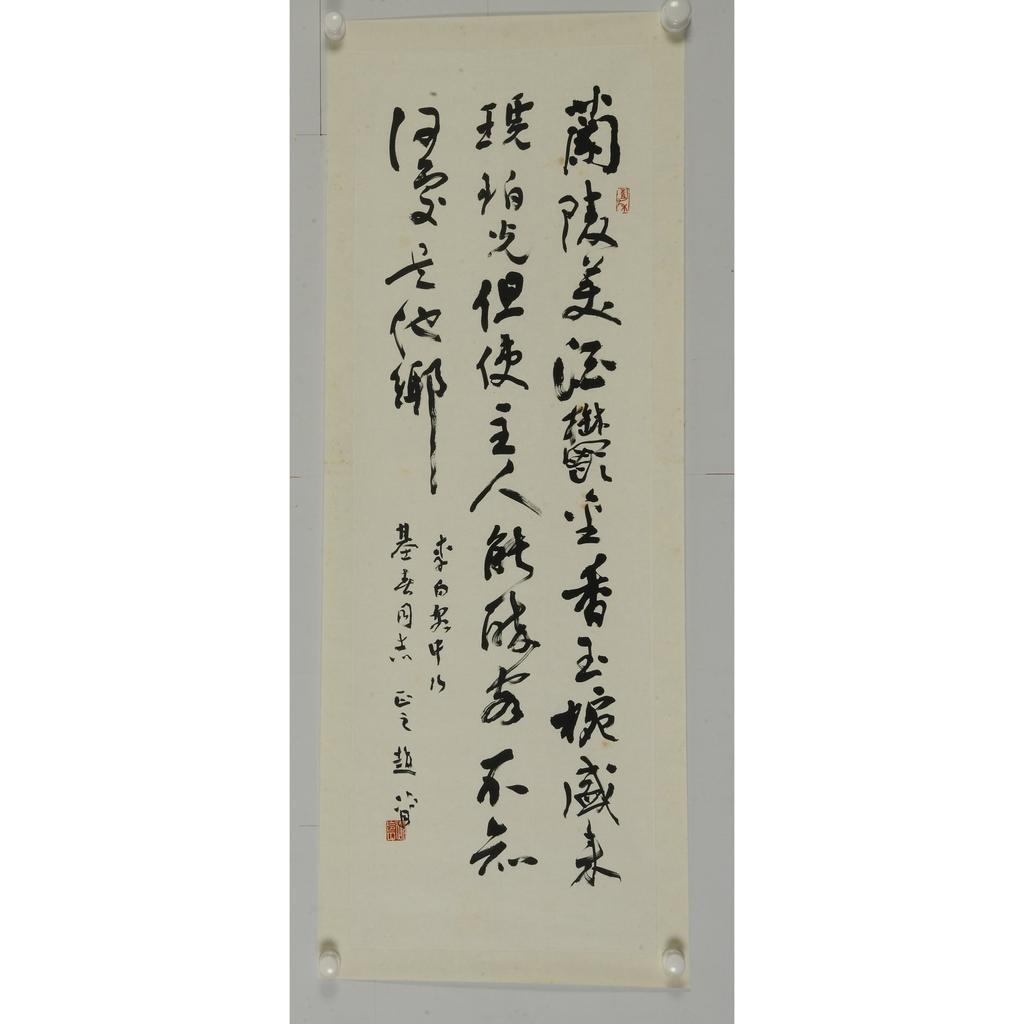 蘭陵美酒鬱金香玉椀盛来
琥珀光但使主人能醉客不知
何處是他鄉
李白客中作
基春同志 正之 趙